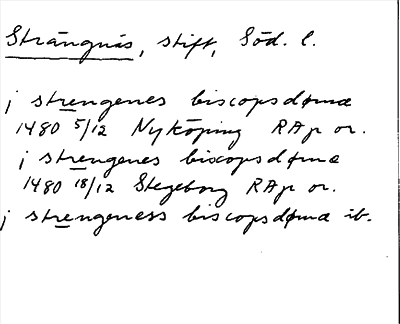 Strängnäs, stift, Söd. l.
j strengenes biscopsdøme
1480 5/12 Nyköping RAp or.
j strengenes biscopsdøme
1480 18/12 Stegeborg RAp or.
j strengeness biscopsdøme ib.